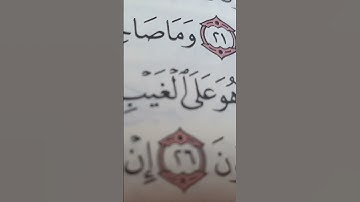 ٢١ وَمَا صَا
هُوَ عَلَى ٱلْغَيْبِ
نَ ٢٦ إِنْ